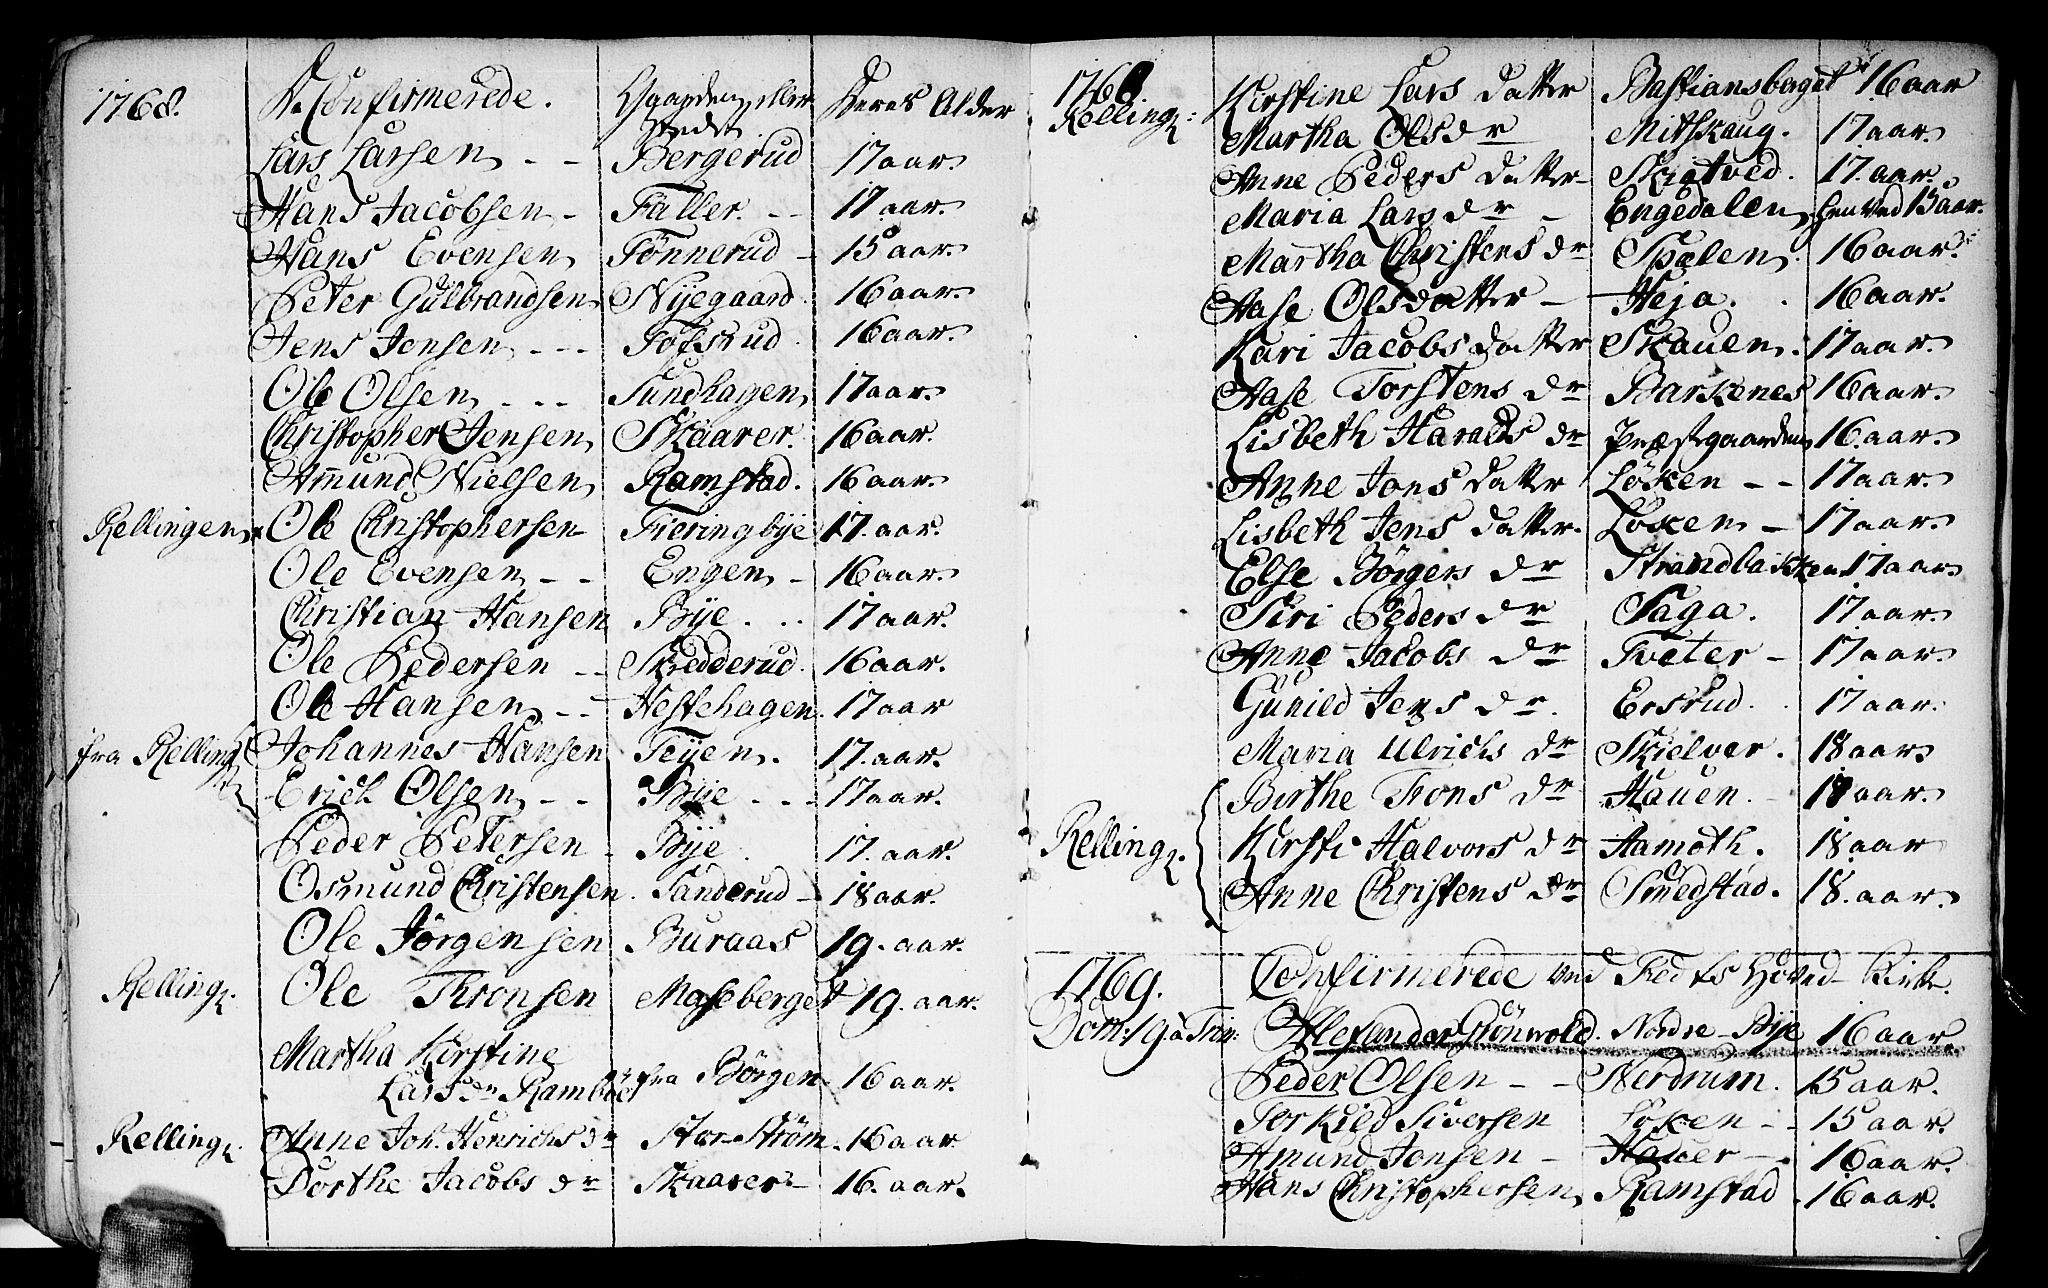 1768. De Confirmerede. Gaarden eller Stedet Deres Alder
Lars Larsen - - Bergerud 17 aar.
Hans Jacobsen - Faller. - - 17 aar.
Hans Evensen Tønnerud - 15 aar.
Peter Gulbrandsen Nyegaard. 16 aar.
Jens Jensen - - - Tofsrud 16 aar.
Ole Olsen - - - Sundhagen 17 aar.
Christopher Jensen Skaarer. 16 aar.
Amund Nielsen Ramstad. 16 aar.
Rellingen Ole Christophersen Fieringbye 17. aar.
Ole Evensen - - Engen - 16 aar.
Christian Hansen Bye. . . 17 aar.
Ole Pedersen - - Skedderud. 16 aar.
Ole Hansen - - Hestehagen. 17 aar
fra Relling Johannes Hansen Teyen. 17. aar.
Erich Olsen - - Bye - - - 17 aar.
Peder Petersen - Bye. 17. aar.
Osmund Christensen. Sanderud - 18 aar.
Ole Jørgensen Buraas 19. aar.
Relling. Ole Thronsen Maseberget 19. aar.
Martha Kirstine
Lars dr Ramböl fra Børgen. 16 aar.
Relling. Anne Joh. Henrichs dr Stor-Strøm. 16 aar
Dorthe Jacobs dr Skaarer - 16. aar.
1768 Kirstine Lars datter Bastiansberget 16 aar
Relling: Martha Ols dr Mitskaug. 17 aar.
Anne Peders datter Skiatved. 17. aar.
Maria Lars dr - Engedalen henved 15 aar.
Martha Christens dr Spælen. 16 aar.
Aase Olsdatter - Heja. . 16 aar.
Kari Jacobs datter Skauen. 17 aar.
Aase Torstens dr Barkenes 16 aar.
Lisbeth Haralds dr Præstgaarden 16. aar.
Anne Jons datter Løken - - 17 aar.
Lisbeth Jens datter. Løken - 17 aar.
Else Børgers dr Strandbakken 17 aar.
Siri Peders dr Saga. 17 aar.
Anne Jacobs dr Tveter - 17 aar.
Gunild Jens dr. Ersrud. 17 aar.
Maria Ulrichs dr Skielver. 18 aar.
Birthe Trons dr Hauen. - 18 aar.
Relling. Kirsti Halvors dr Aamoth. 18 aar
Anne Christens dr Smedstad. 18. aar.
1769. Confirmerede ved Feds Hoved-Kirke.
Dom: 19 a Trin: Alexander Grönwold. Nordre-Bye 16 aar.
Peder Olsen - - Nerdrum. 15 aar.
Torkild Siversen Løken - - 15 aar.
Amund Jonsen - Hauer - . 16 aar.
Hans Christophersen Ramstad - 16 aar.